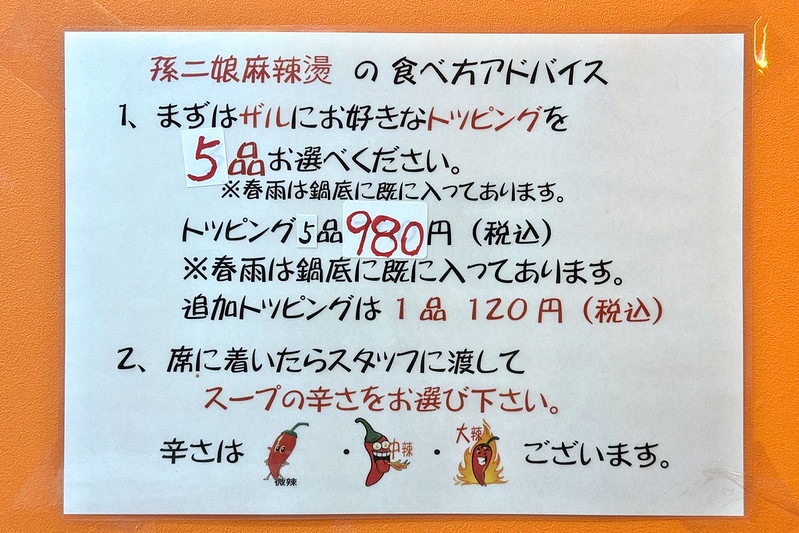 孫二娘麻辣燙 の 食べ方アドバイス
1、まずはザルにお好きなトッピングを
5品お選べください。
※春雨は鍋底に既に入つております。
トッピング5品980円（税込）
※春雨は鍋底に既に入つております。
追加トッピングは 1 品 120 円（税込）
2、席に着いたらスタッフに渡して
スープの辛さをお選び下さい。
辛さは 微辣 ・ 中辣 ・ 大辣 ございます。